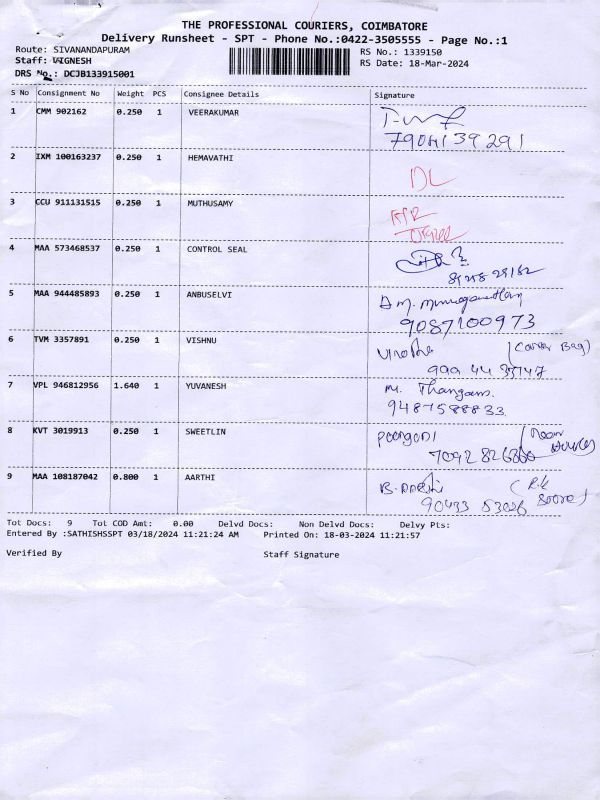 THE PROFESSIONAL COURIERS, COIMBATORE
Delivery Runsheet - SPT - Phone No.:0422-3505555 - Page No.:1
Route: SIVANANDAPURAM RS No.: 1339150
Staff: VIGNESH RS Date: 18-Mar-2024
DRS No.: DCJB133915001
S No Consignment No Weight PCS Consignee Details Signature
1 CMM 902162 0.250 1 VEERAKUMAR
7904139291
2 IXM 100163237 0.250 1 HEMAVATHI
DL
3 CCU 911131515 0.250 1 MUTHUSAMY
4 MAA 573468537 0.250 1 CONTROL SEAL
5 MAA 944485893 0.250 1 ANBUSELVI
9087100973
6 TVM 3357891 0.250 1 VISHNU
(Carer Bag)
7 VPL 946812956 1.640 1 YUVANESH M. Thangam.
9487588833
8 KVT 3019913 0.250 1 SWEETLIN
9 MAA 108187042 0.800 1 AARTHI
Tot Docs: 9 Tot COD Amt: 0.00 Delvd Docs: Non Delvd Docs: Delvy Pts:
Entered By :SATHISHSSPT 03/18/2024 11:21:24 AM Printed On: 18-03-2024 11:21:57
Verified By Staff Signature